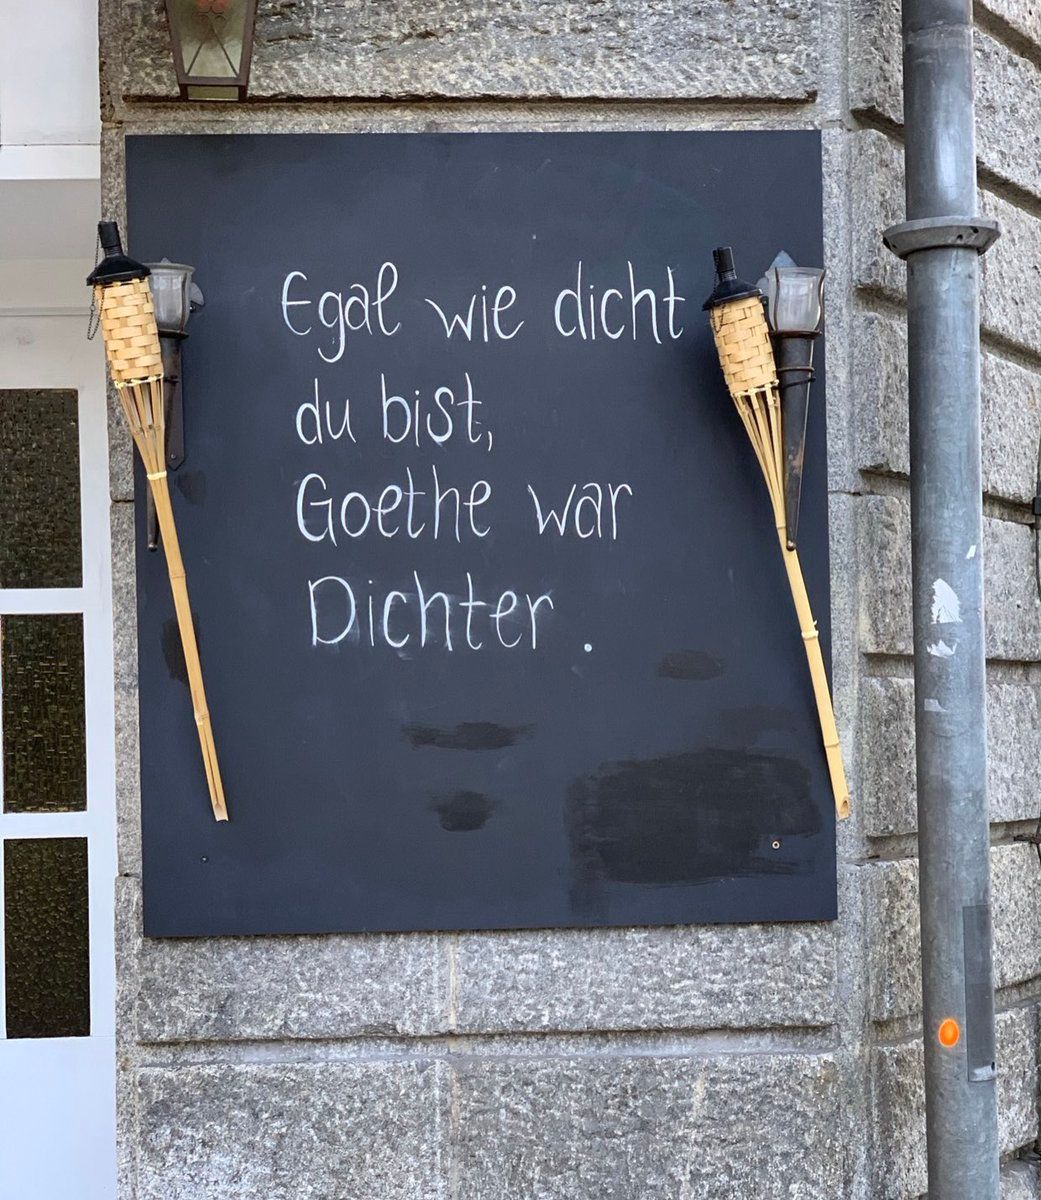 Egal wie dicht
du bist,
Goethe war
Dichter.